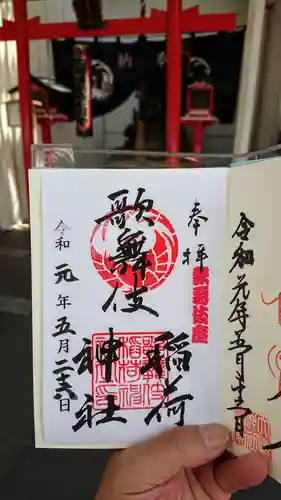 奉拝
歌舞伎座
歌舞伎
稲荷
神社
令和元年五月二十六日
令和元年五月十三日